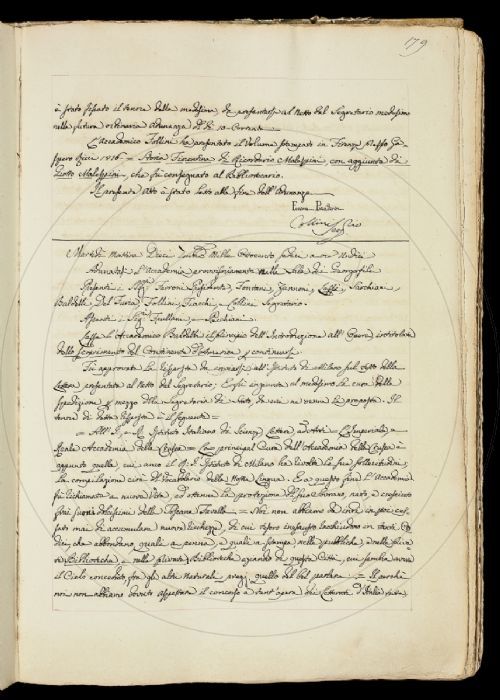 179
è stato fissato il tenore della medesima da presentarsi al Netto dal Segretario medesimo
nella futura ordinaria Adunanza del dì 10. Corrente
L'Accademico Follini ha presentato il Volume stampato in Firenze presso Ga-
spero Ricci 1816 = Storia Fiorentina di Ricordano Malespini, con aggiunta di
Giotto Malespini, che fù consegnato al Bibliotecario.
Il presente Atto è stato letto alla fine dell'Adunanza
Collini Seg.rio
Martedì Mattina Dieci Mille Ottocento a ore Undici
Adunatasi l'Accademia provvisoriamente nella Sala dei Georgofili
Presenti i Sigg.ri Ferroni Presidente, Fontani, Zannoni, Lessi, Sarchiani,
Baldelli, Del Furia, Follini, Fiacchi, e Collini Segretario.
Assenti i Sigg.ri
Lesse l'Accademico Baldelli il principio dell'Introduzione all'Opera intitolata
dello scoprimento del Continente e continuerà
Fù approvata la Risposta da mandarsi all'Istituto di Milano sul gusto della
Lettera presentata al Netto dal Segretario; e così ingiunta al medesimo la cura della
spedizione per mezzo della Segreteria di Stato, da cui ne venne la proposta. Il
tenore di detta Risposta è il seguente =
= All' I. e R. Istituto Italiano di Scienze Lettere, ed Arti = L'Imperiale e
Reale Accademia della Crusca = principal Cura dell'Accademia della Crusca è
appunto quella, cui anco il R. I. Istituto di Milano ha rivolte le sue sollecitudini,
la compilazione cioè del Vocabolario della Nostra Lingua. E a questo fine l'Accademia
fù richiamata a nuova Vita, ed ottenne la protezione del suo Sovrano, nato e cresciuto
frai suoni dolcissimi della Toscana favella = Noi non abbiamo da indi in poi ces-
sato mai di accumulare nuove ricchezze, di cui tesoro inesausto racchiudono in varj Co-
dici, che abbondano, quali a penna, e quali a stampa nelle pubbliche, e nelle priva-
te Biblioteche di questa Città, cui sembra avere
il Cielo conceduto, fra gli altri Naturali pregj, quello del bel parlare. = Il perchè
noi non abbiamo dovuto aspettare il concorso a tant'opera dei Letterati d'Italia